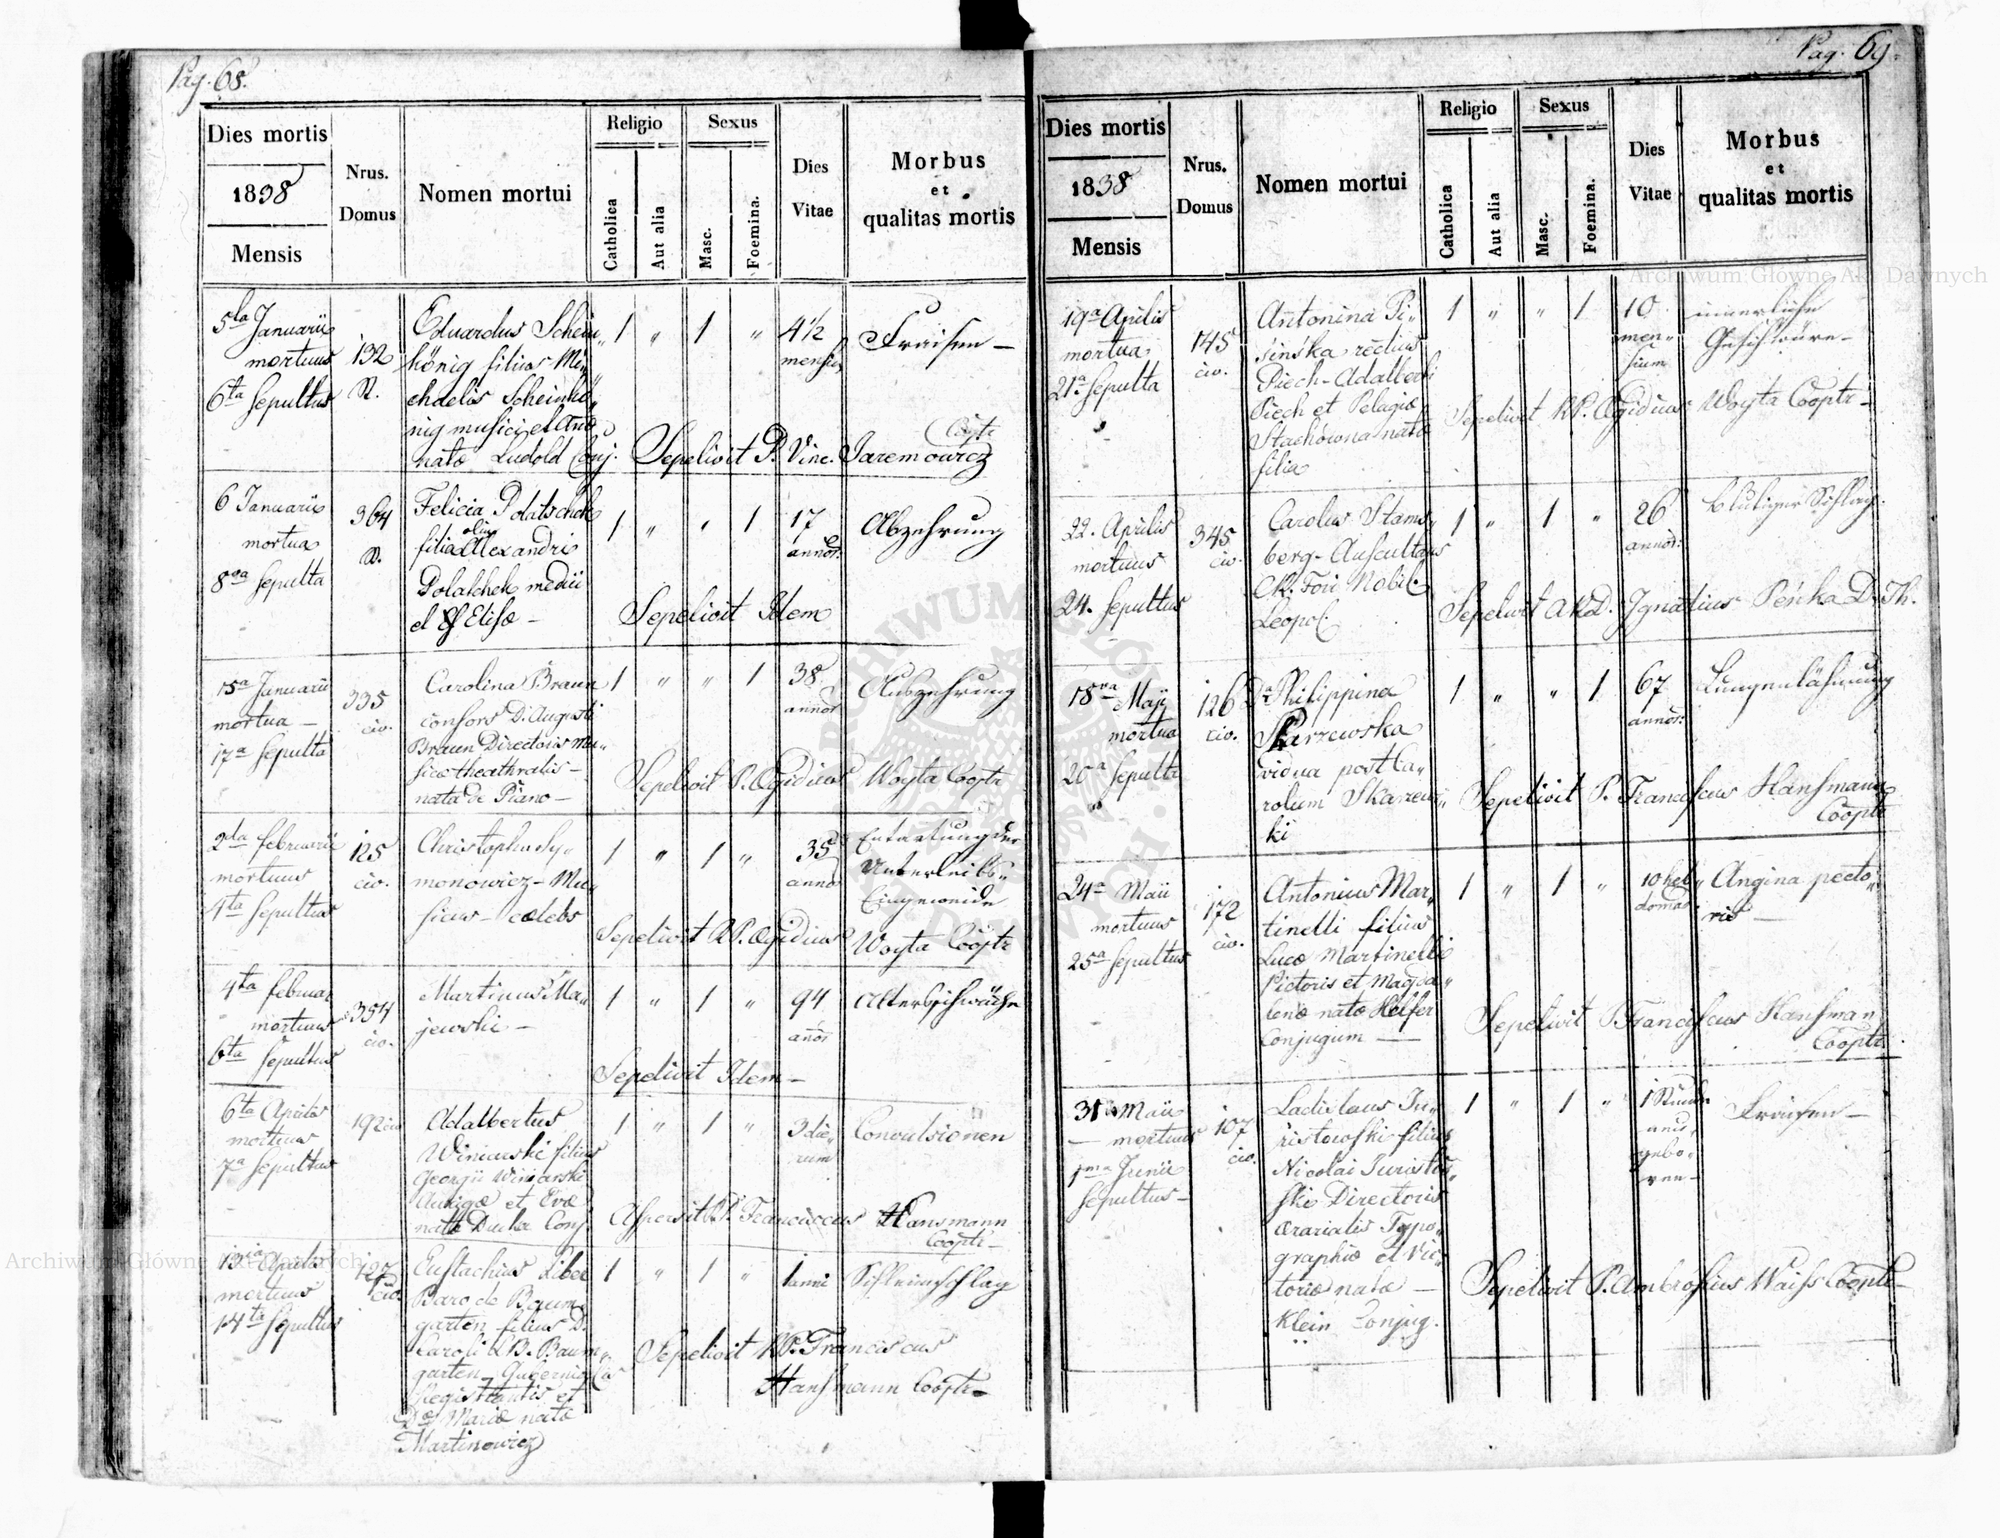 Pag. 68.
Dies mortis
1838
Mensis
Nrus.
Domus
Nomen mortui
Religio
Catholica
Aut alia
Sexus
Masc.
Foemina.
Dies
Vitae
Morbus
et
qualitas mortis
5ta Januarii
mortuus
6ta Sepultus
132
Eduardus Schein„
könig filius Mi„
chaelis Scheinkö„
nig musici et Annæ
natæ Ludold Conj.
1 „ 1 „
4 1/2
mensium
Fraisen –
Sepelivit P. Vinc. Jaremowicz
Cooptr
6 Januarii
mortua
8va Sepulta
364
Felicia Polatschek
filia olim Alexandri
Polatchek medici
et Elisæ –
1 „ „ 1
17
annor:
Abzehrung
Sepelivit Idem
15a Januarii
mortua –
17a Sepulta
335
civ.
Carolina Braun
consors D. Augusti
Braun Directoris mu„
sicæ theathralis –
nata de Piano –
1 „ „ 1
38
annor
Abzehrung
Sepelivit P. Ægidius Woyta Cooptr
2da februarii
mortuus
4ta Sepultus
125
civ.
Christophus Sy„
monowicz – Mu„
sicus – cælebs
1 „ 1 „
35
annor
Entartung der
Unterleibs„
Eingeweide
Sepelivit RP. Ægidius Woyta Cooptr
4ta februar
mortuus
6ta Sepultus
354
civ.
Martinus Ma„
jewski –
1 „ 1 „
94
annor
Altersschwäche
Sepelivit Idem –
6ta Aprilis
mortuus
7a Sepultus
192 civ
Adalbertus
Winiarski filius
Georgii Winiarski
Aurigæ et Evæ
natæ Duda Conj.
1 „ 1 „
3 die„
rum
Convulsionen
Aspersit RP. Franciscus Hansmann
Cooptr –
13tia Aprilis
mortuus
14ta Sepultus
127
civ.
Eustachius Liber
Baro de Baum„
garten filius D.
Caroli L. B. Baum„
garten Gubernii
Registrantis et
Dæ Mariæ natæ
Martinowicz
1 „ 1 „
1 anni
Schleimschlag
Sepelivit RP. Franciscus
Hansmann Cooptr –
Pag. 69.
Dies mortis
1838
Mensis
Nrus.
Domus
Nomen mortui
Religio
Catholica
Aut alia
Sexus
Masc.
Foemina.
Dies
Vitae
Morbus
et
qualitas mortis
19a Aprilis
mortua
21a Sepulta
745
civ.
Antonina Pi„
sinska rectius
Piech – Adalberti
Piech et Pelagiæ
Stachówna natæ
filia
1 „ „ 1
10
men„
sium
innerliche
Geschwüre –
Sepelivit RP. Ægidius Woyta Cooptr –
22. Aprilis
mortuus
24. Sepultus
345
civ.
Carolus Stams„
berg – Auscultans
CR. Fori Nobil.
Leopol.
1 „ 1 „
26
annor:
blutiger Schlag.
Sepelivit Ignatius Penka D. Th.
18va Maji
mortua
20a Sepulta
126
civ.
Da Philippina
Skarzewska
vidua post Ca„
rolum Skarzews„
ki
1 „ „ 1
67
annor:
Lungenlähmung
Sepelivit P. Franciscus Hansmann
Cooptr
24a Maii
mortuus
25a Sepultus
172
civ.
Antonius Mar„
tinelli filius
Lucæ Martinelli
Pictoris et Magda„
lenæ natæ Helfer
Conjugum –
1 „ 1 „
10 heb„
domad.
Angina pecto„
ris –
Sepelivit P. Franciscus Hansman
Cooptr.
31a Maii
– mortuus
1ma Junii
Sepultus –
107
civ.
Ladislaus Ju„
ristowski filius
Nicolai Juristow„
ski Directoris
ærarialis Typo„
graphiæ et Vic„
toriæ natæ –
Klein Conjug.
1 „ 1 „
1 Stunde
gebo„
ren –
Fraisen –
Sepelivit P. Ambrosius Waiss Cooptr –
Archiwum Główne Akt Dawnych
Archiwum Główne Akt Dawnych
ARCHIWUM GŁÓWNE AKT DAWNYCH